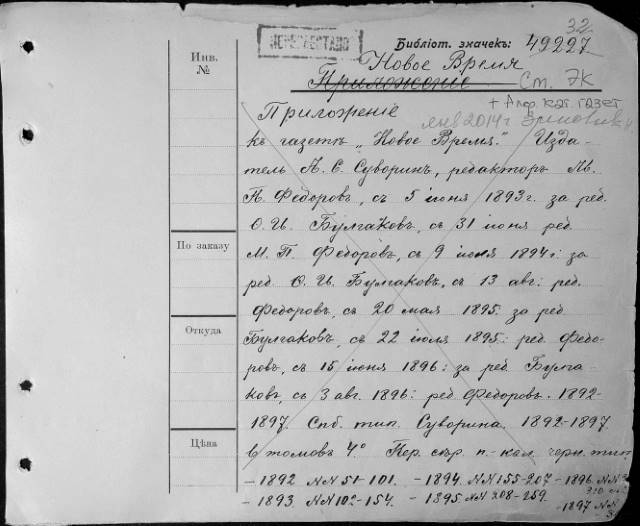 32
ПЕРЕУЧТЕНО
Библіот. значекъ: 49227
Инв.
№
Новое Время
Приложеніе Ст. ЭК
+ Алф. кат. газет
Приложеніе янв 2014 г
къ газетѣ „Новое Время." Изда-
тель А. С. Суворинъ, редакторъ
П. Ѳедоровъ, съ 5 іюня 1893 г. за ред
Ѳ. И. Булгаковъ, съ 31 іюня ред.
По заказу
М. П. Ѳедоровъ, съ 9 іюня 1894 г. за
ред Ѳ. И. Булгаковъ, съ 13 авг: ред.
Ѳедоровъ, съ 20 мая 1895. за ред
Откуда
Булгаковъ, съ 22 іюля 1895: ред. Ѳедо-
ровъ, съ 15 іюня 1896: за ред. Булга-
ковъ, съ 3 авг. 1896: ред. Ѳедоровъ. 1892-
1897. Спб. тип. Суворина. 1892-1897.
Цѣна
6 томовъ 4° Пер. сѣр. п.-кал. черн. тип
- 1892 №№ 51-101. - 1894. №№ 155-207 - 1896 №№
- 1893. №№ 102-154. - 1895 №№ 208-259.
- 1897 №№